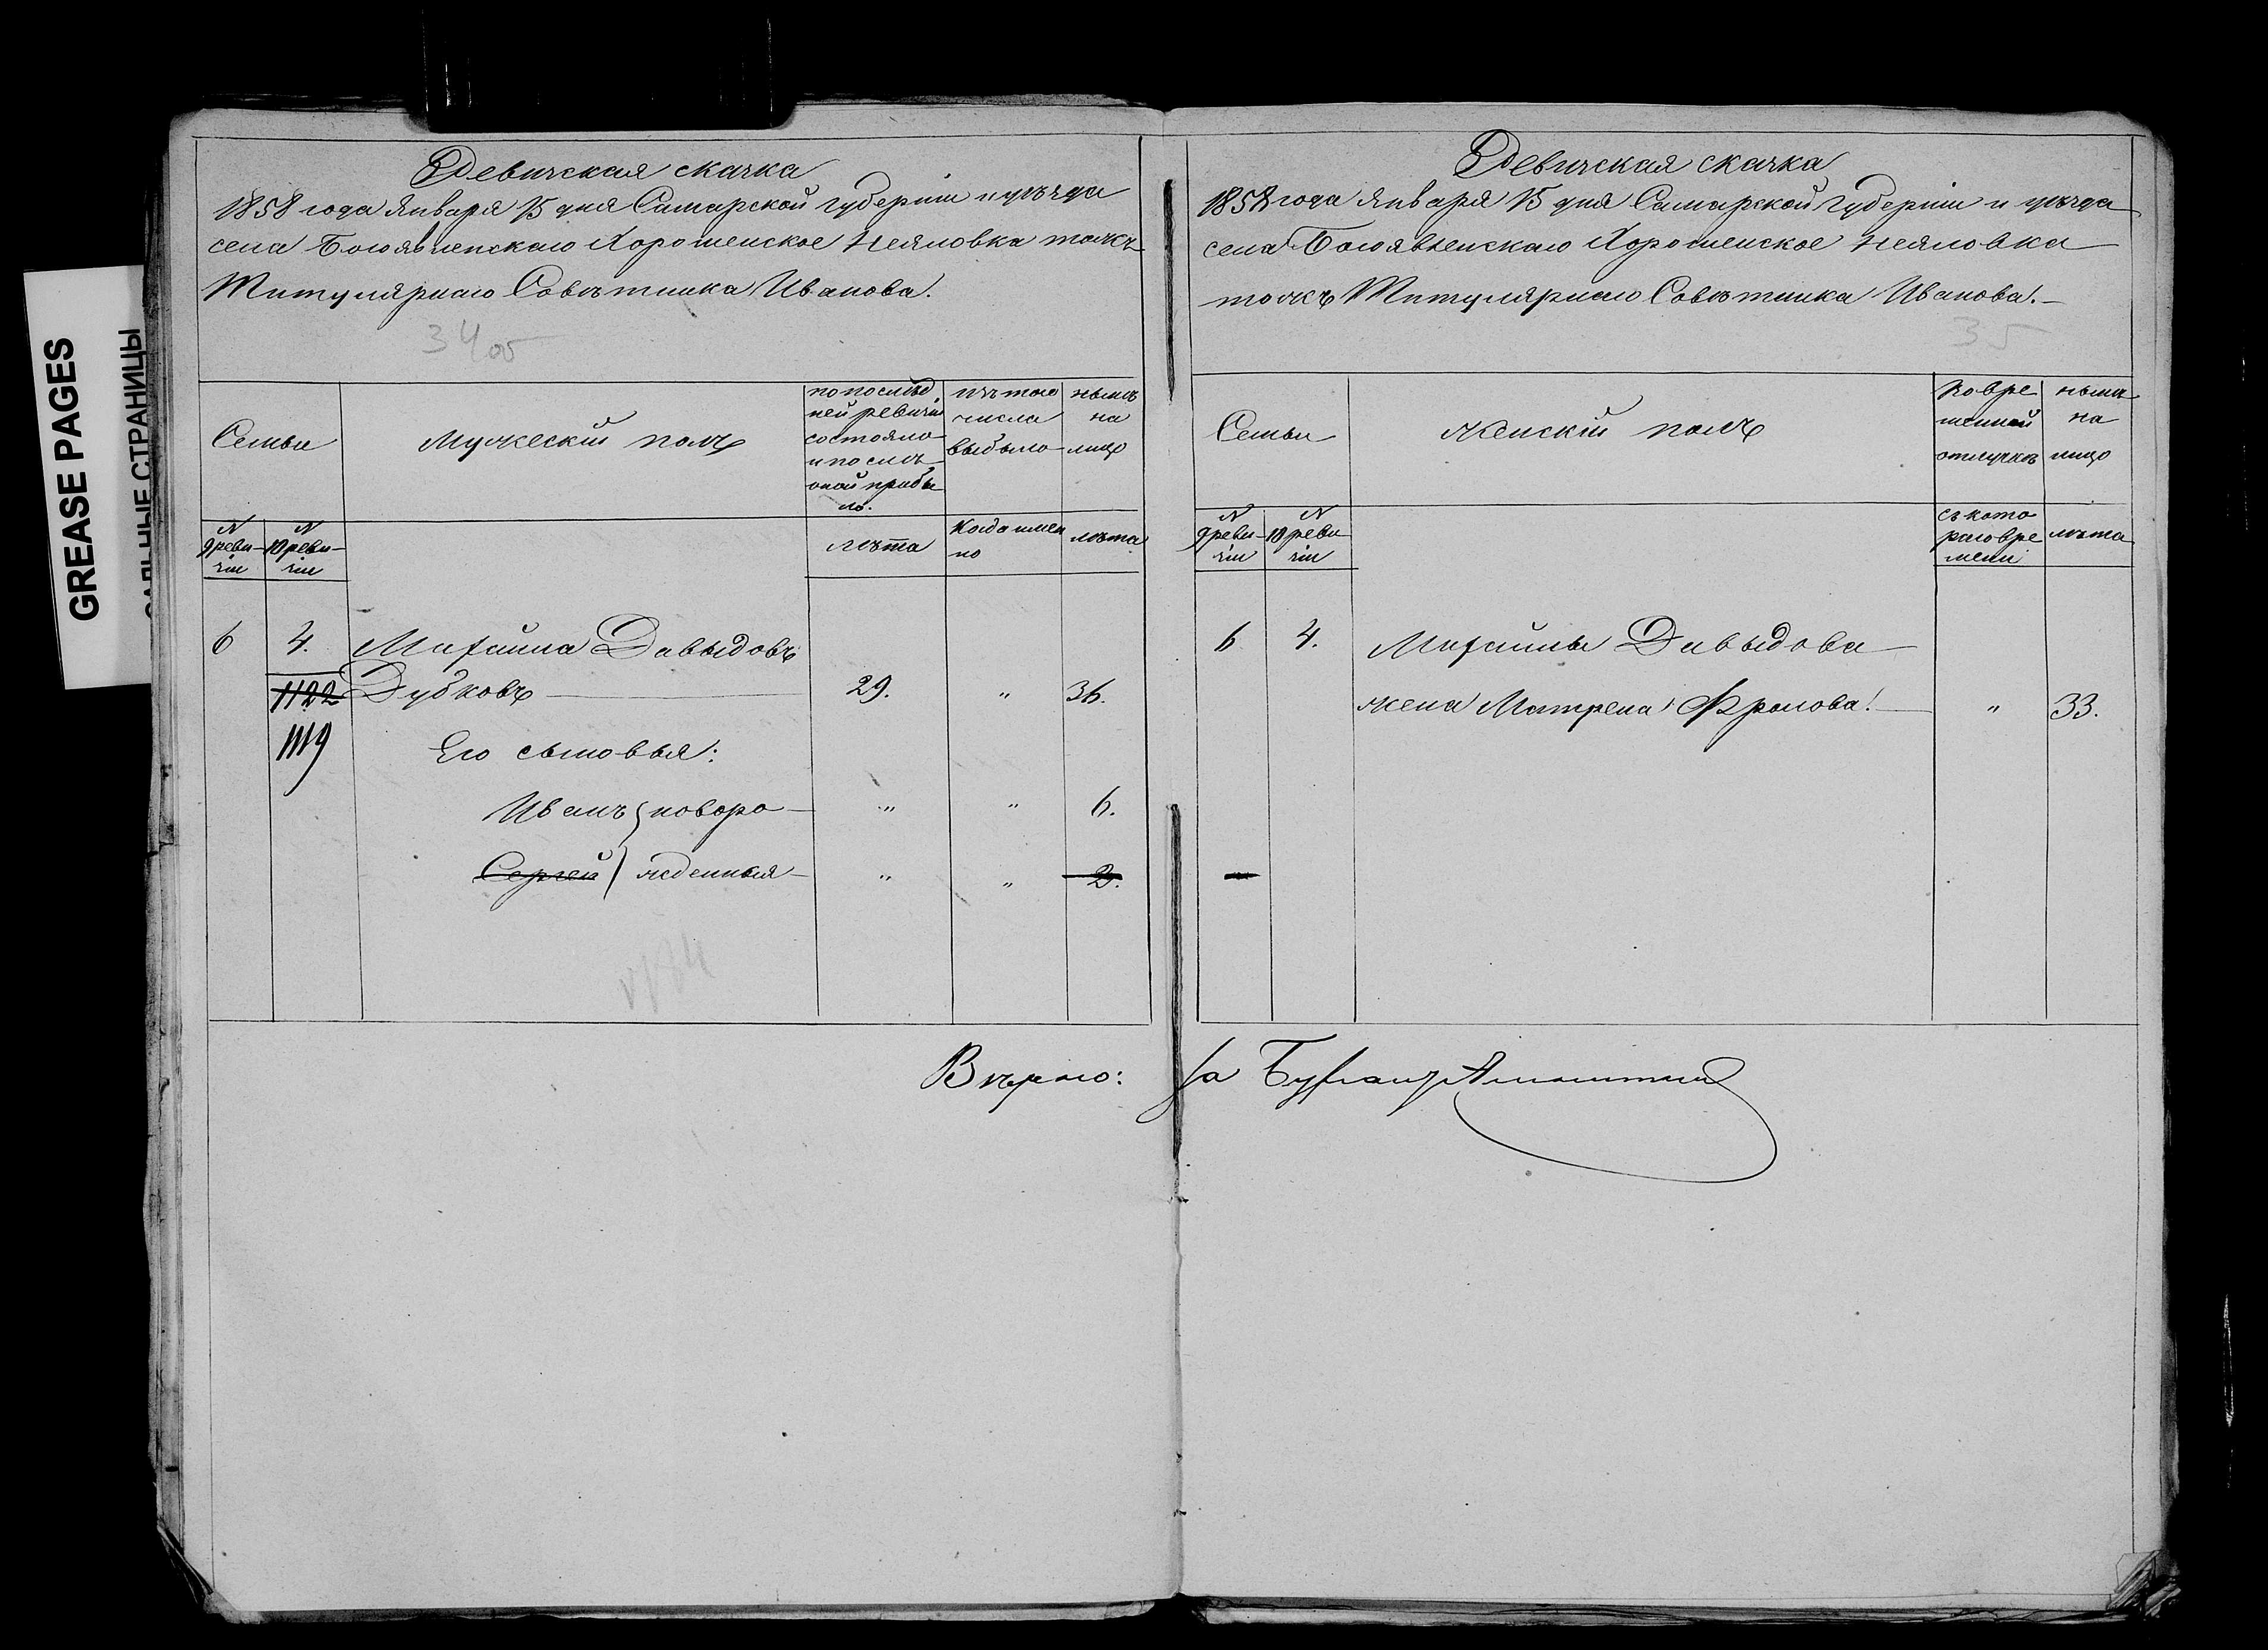 GREASE PAGES
САЛЬНЫЕ СТРАНИЦЫ
Ревизская сказка
1858 года Января 15 дня Самарской губерніи и уѣзда
села Богоявленскаго Хорошенское Неяловка тожъ
Титулярнаго Совѣтника Иванова.
34 об
Семьи
Мужескій полъ
по послѣд
ней ревизіи
состояло
и послѣ
оной прибы
ло.
изъ того
числа
выбыло
нынѣ
на
лицо
N
9 реви-
зіи
N
10 реви-
зіи
лѣта
Когда имен
но
лѣта
6 4. Михайла Давыдовъ
1122 Дубковъ 29. " 36.
1119 Его сыновья:
Иванъ } новоро- " " 6.
Сергей } жденныя " " 2.
Вѣрно:
Ревизская сказка
1858 года Января 15 дня Самарской Губерніи и уѣзда
села Богоявленскаго Хорошенское Неяловка
тожъ Титулярнаго Совѣтника Иванова.
35
Семьи
Женскій полъ
Во вре
менной
отлучкѣ
нынѣ
на
лицо
N
9 реви-
зіи
N
10 реви
зіи
съ кото
раго вре
мени
лѣта
6 4. Михайлы Давыдова
жена Матрена Фролова. " 33.
За